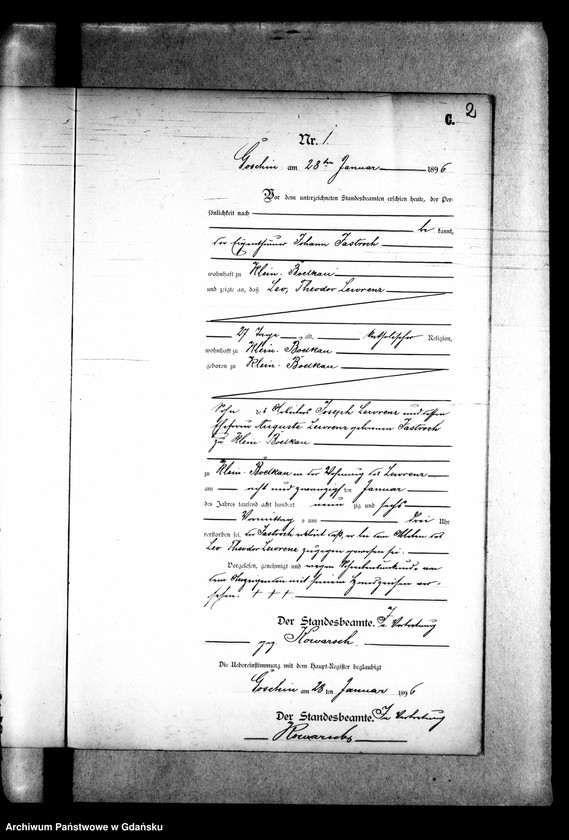 2
C.
Nr. 1.
Goschin am 28ten Januar 1896
Vor dem unterzeichneten Standesbeamten erschien heute, der Per-
sönlichkeit nach
be kannt,
der Eigenthümer Johann Jastroch
wohnhaft zu Klein-Boelkau
und zeigte an, daß Leo, Theodor Lewrenz
27 Tage alt, katholischer Religion,
wohnhaft zu Klein-Boelkau
geboren zu Klein-Boelkau
Sohn des Arbeiters Joseph Lewrenz und dessen
Ehefrau Auguste Lewrenz geborenen Jastroch
zu Klein Boelkau
zu Klein-Boelkau in der Wohnung des Lewrenz
am acht und zwanzigsten Januar
des Jahres tausend acht hundert neun zig und sechs
Vormittags um drei Uhr
verstorben sei. Der Jastroch erklärt, daß er bei dem Ableben des
Leo Theodor Lewrenz zugegen gewesen sei.
Vorgelesen, genehmigt und wegen Schreibunkunde von
dem Anzeigenden mit seinem Handzeichen ver-
sehen. + + +
Der Standesbeamte. In Vertretung
gez. Kowarsch.
Die Uebereinstimmung mit dem Haupt-Register beglaubigt
Goschin am 28 ten Januar 1896
Der Standesbeamte. In Vertretung
Kowarsch
Archiwum Państwowe w Gdańsku